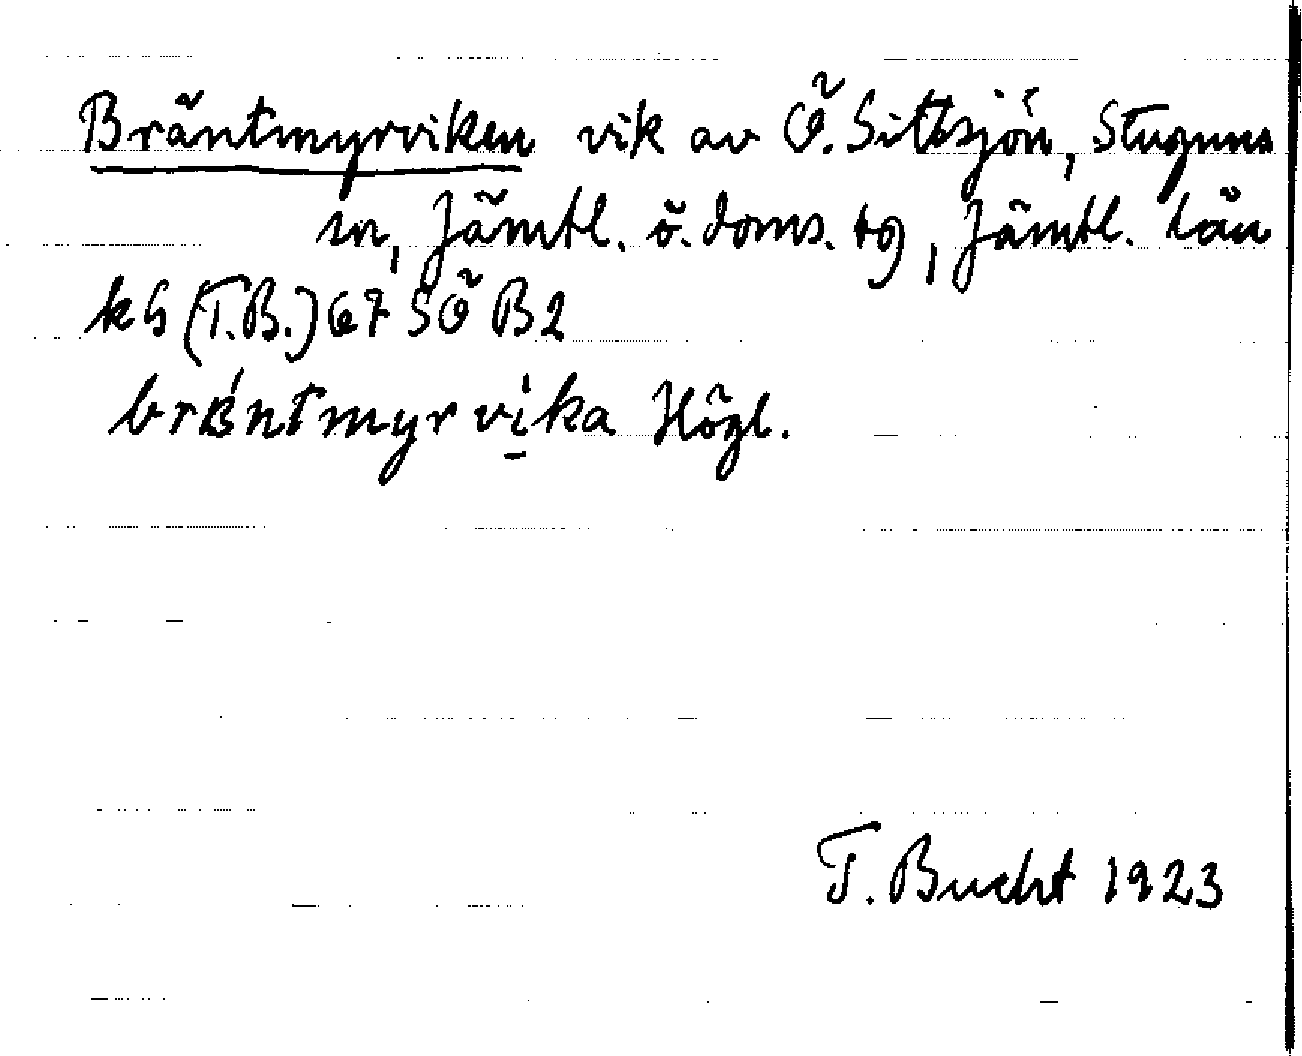 Bräntmyrviken vik av Ö. Sittsjön, Stuguns
sn, Jämtl. ö. doms. tg, Jämtl. län
kh (T.B.) 67 SÖ B2
bräntmyrvika Högl.
T. Bucht 1923